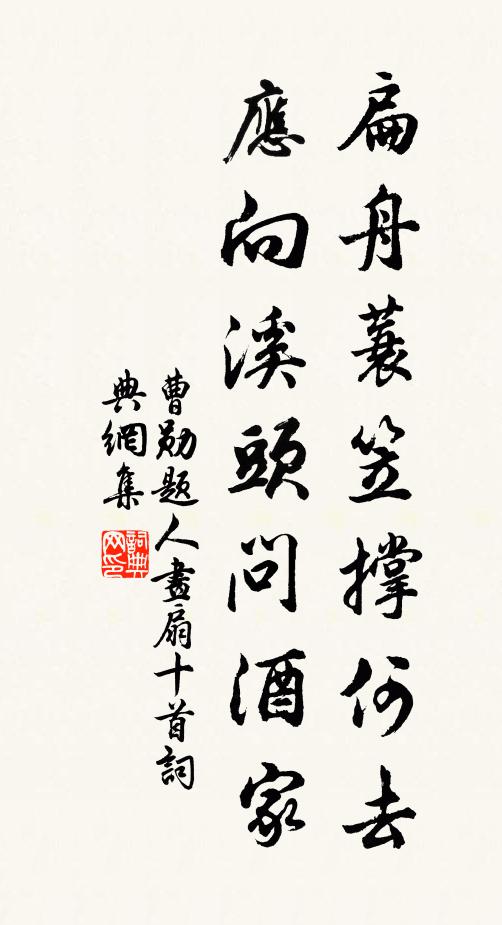 扁舟蓑笠撑何去
應向溪頭問酒家
曹勛題人畫扇十首詞
典網集
詞典
网印